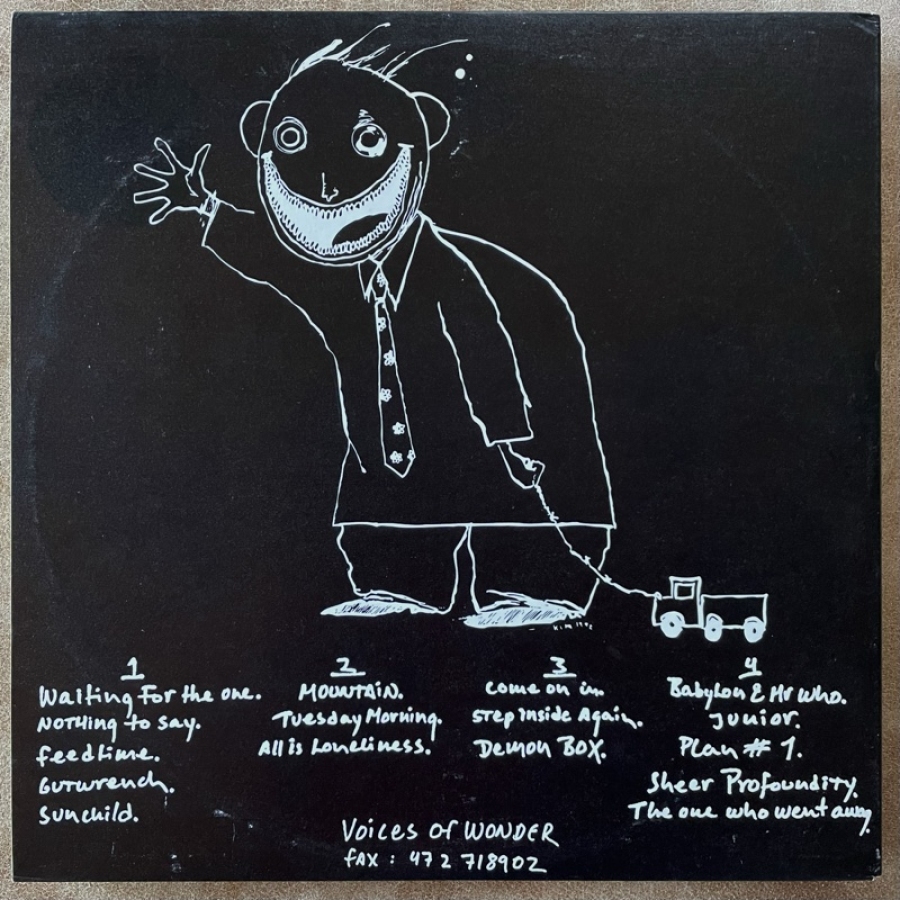 KIM 1992
1
Waiting For the one.
NOTHING to say.
feedtime.
Gutwrench.
Sunchild.
2
MOUNTAIN.
Tuesday Morning.
All is Loneliness.
3
Come on in.
STEP inside Again.
DEMON BOX.
4
Babylon & Mr Who.
Junior.
Plan # 1.
Sheer Profoundity.
The one who went away.
Voices of WONDER
FAX : 47 2 718902